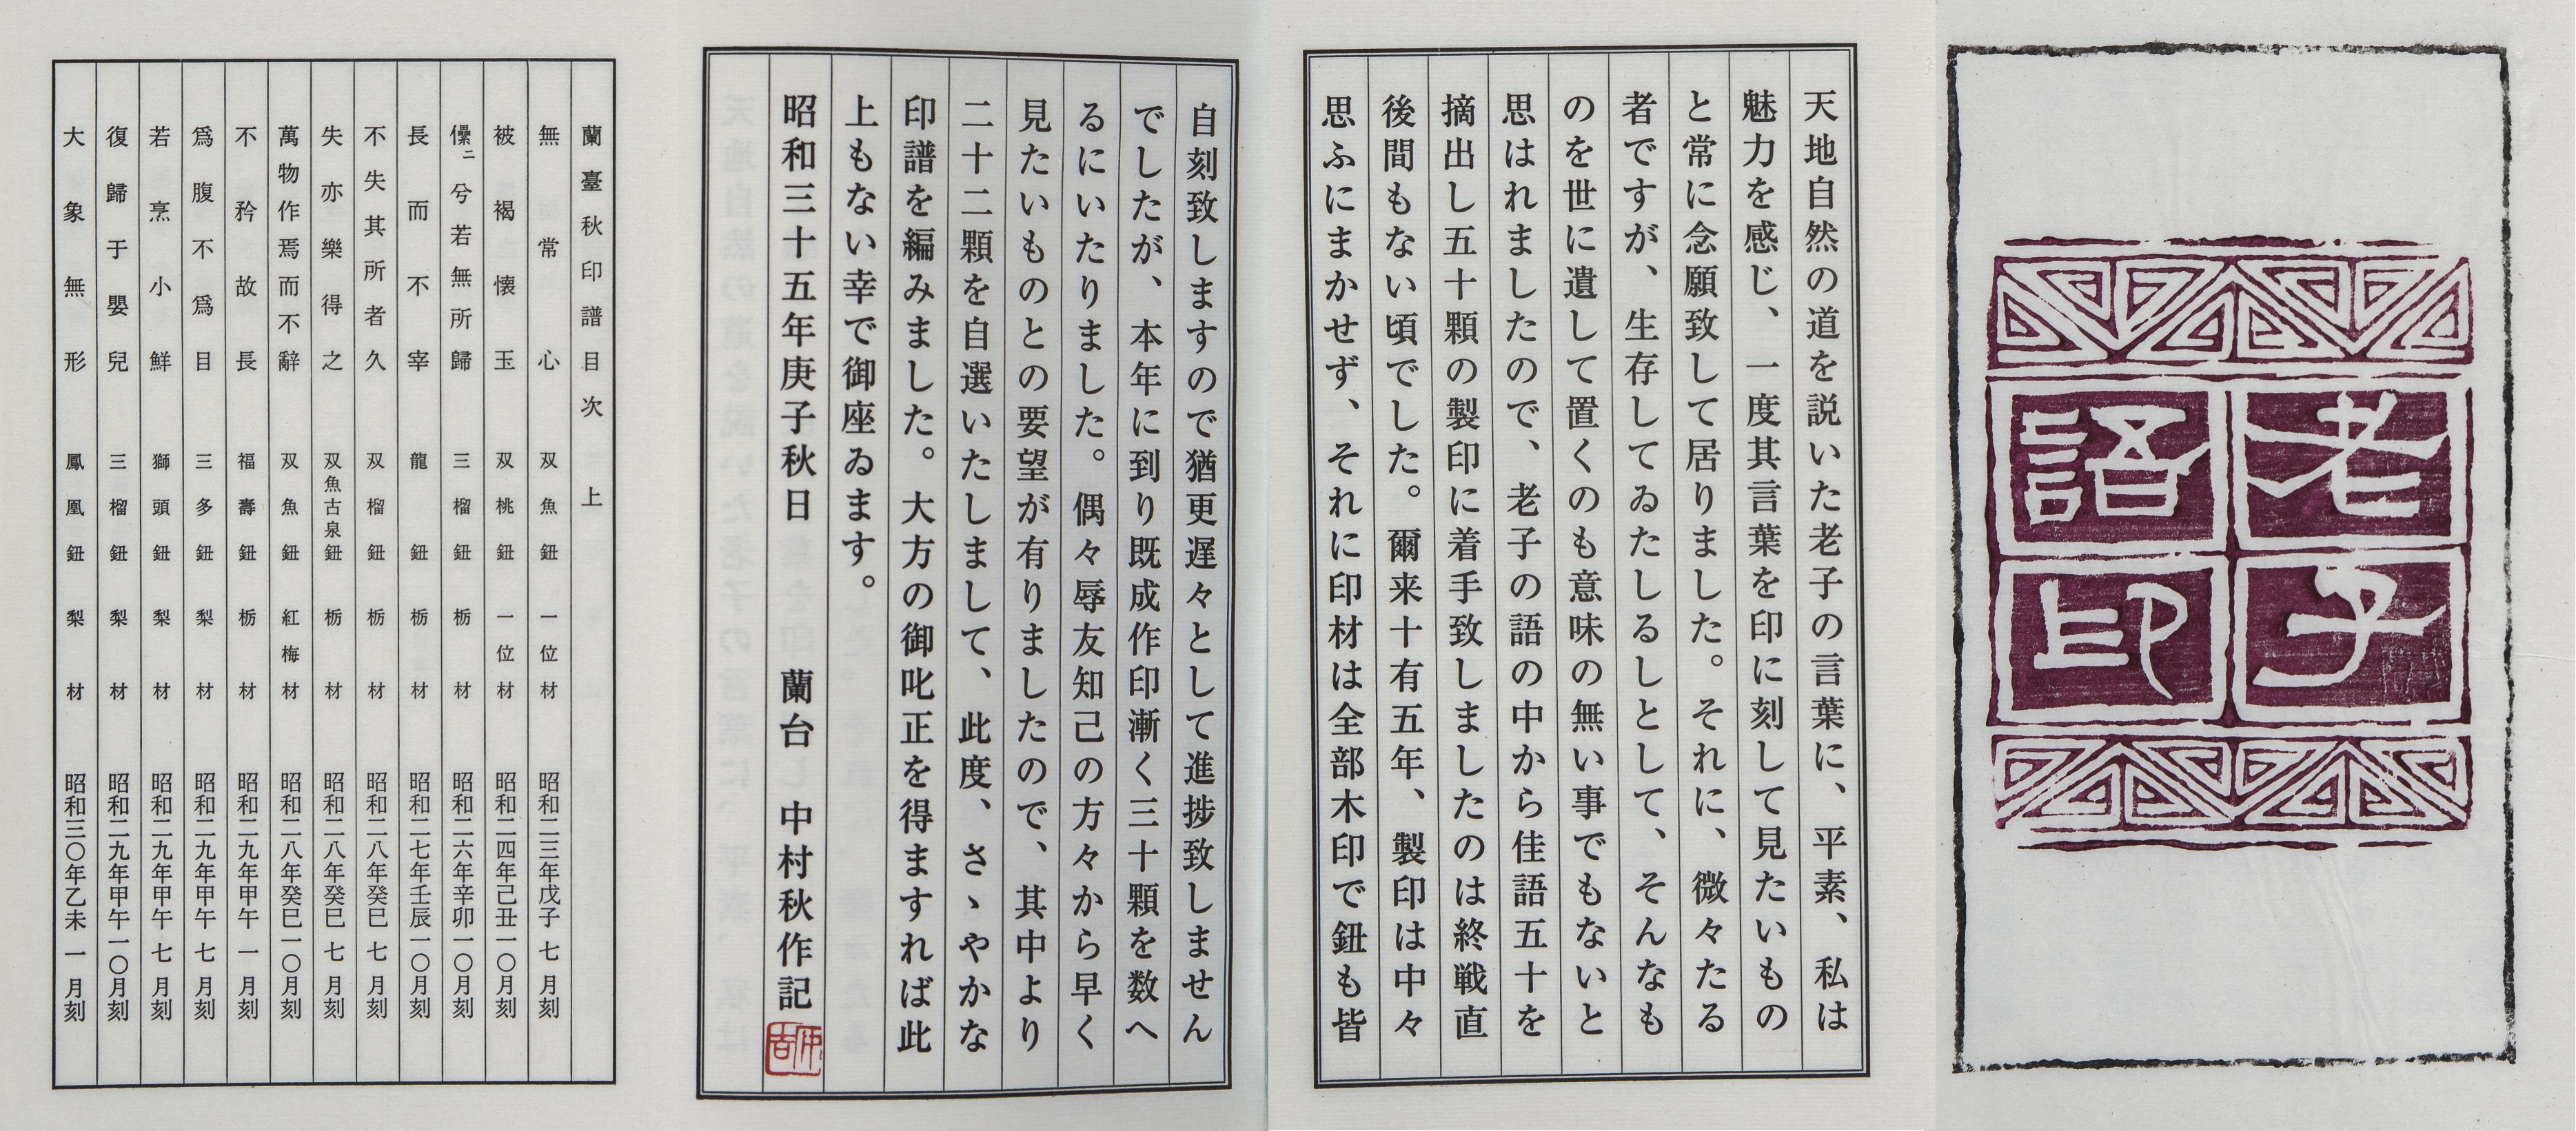 老子
語印
天地自然の道を説いた老子の言葉に、平素、私は
魅力を感じ、一度其言葉を印に刻して見たいもの
と常に念願致して居りました。それに、微々たる
者ですが、生存してゐたしるしとして、そんなも
のを世に遺して置くのも意味の無い事でもないと
思はれましたので、老子の語の中から佳語五十を
摘出し五十顆の製印に着手致しましたのは終戦直
後間もない頃でした。爾来十有五年、製印は中々
思ふにまかせず、それに印材は全部木印で鈕も皆
自刻致しますので猶更遅々として進捗致しません
でしたが、本年に到り既成作印漸く三十顆を数へ
るにいたりました。偶々辱友知己の方々から早く
見たいものとの要望が有りましたので、其中より
二十二顆を自選いたしまして、此度、さゝやかな
印譜を編みました。大方の御叱正を得ますれば此
上もない幸で御座ゐます。
昭和三十五年庚子秋日　蘭台　中村秋作記
蘭臺秋印譜目次　上
無常心　双魚鈕　一位材　昭和二三年戊子七月刻
被褐懐玉　双桃鈕　一位材　昭和二四年己丑一〇月刻
儽〻兮若無所歸　三榴鈕　栃材　昭和二六年辛卯一〇月刻
長而不宰　龍鈕　栃材　昭和二七年壬辰一〇月刻
不失其所者久　双榴鈕　栃材　昭和二八年癸巳七月刻
失亦樂得之　双魚古泉鈕　栃材　昭和二八年癸巳七月刻
萬物作焉而不辭　双魚鈕　紅梅材　昭和二八年癸巳一〇月刻
不矜故長　福壽鈕　栃材　昭和二九年甲午一月刻
爲腹不爲目　三多鈕　梨材　昭和二九年甲午七月刻
若烹小鮮　獅頭鈕　梨材　昭和二九年甲午七月刻
復歸于嬰兒　三榴鈕　梨材　昭和二九年甲午一〇月刻
大象無形　鳳凰鈕　梨材　昭和三〇年乙未一月刻